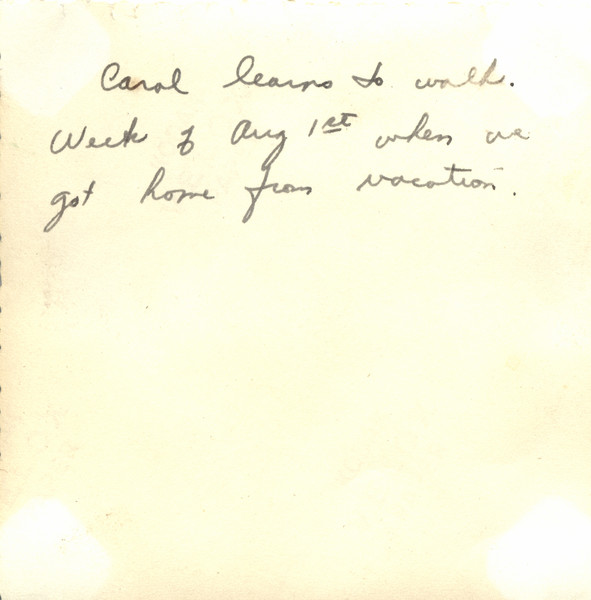 Carol learns to walk.
Week of Aug 1st when we
got home from vacation.